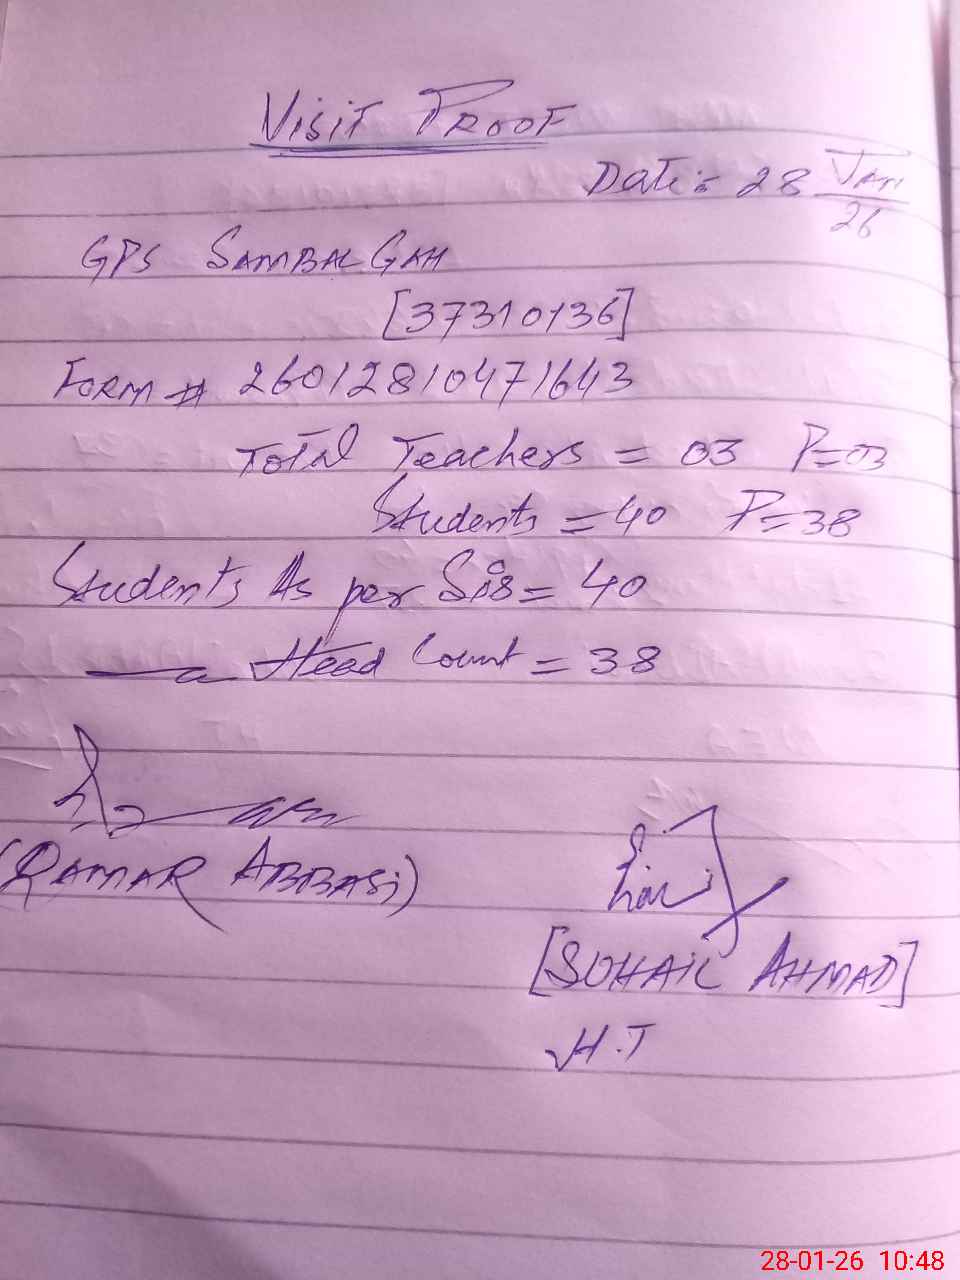 Visit Proof
Date: 28 Jan
26
GPS Sambal Gah
[37310136]
Form # 26012810471643
Total Teachers = 03 P=03
Students = 40 P=38
Students As per Sis = 40
Head Count = 38
(Qamar Abbasi)
[Sohail Ahmad]
H.T
28-01-26 10:48